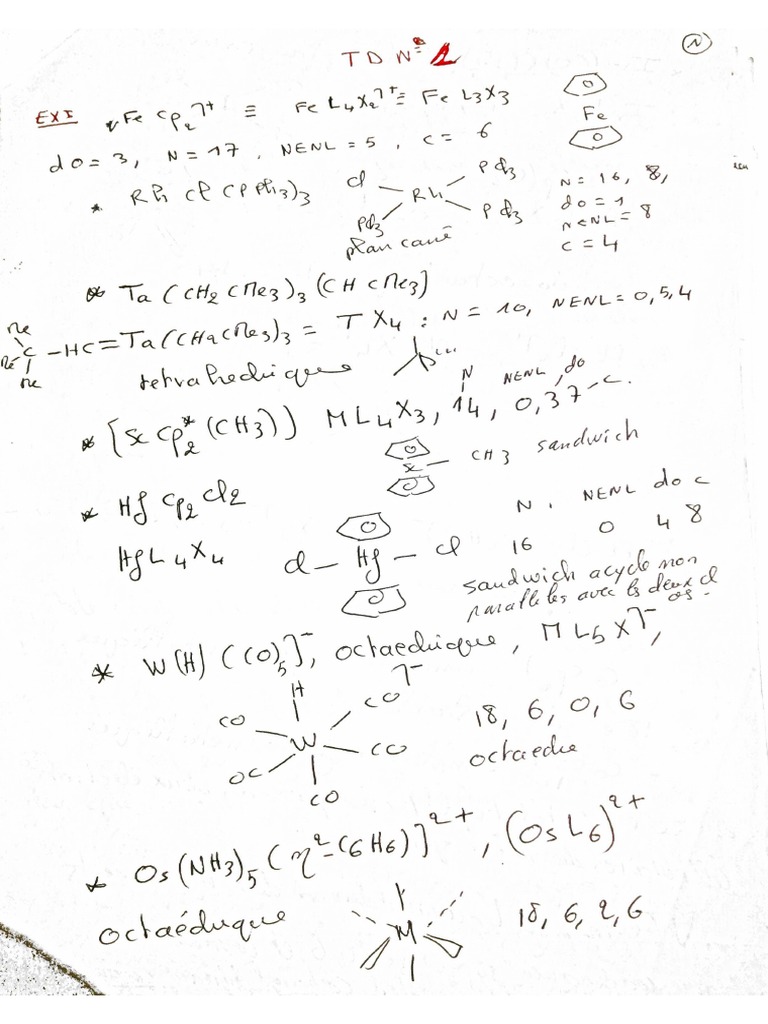 N
TD N° 1
EXI * Fe Cp2⁊+ ≡ Fe L4X2⁊+ ≡ Fe L3X3
Fe
do = 3, N = 17, NENL = 5, C = 6
* Rh Cl (PPh3)3
Cl Rh Pϕ3
Pϕ3 Pϕ3
plan carré
N = 16, 8,
do = 1
NENL = 8
C = 4
* Ta (CH2 CMe3)3 (CH CMe3)
Me
Me C - HC = Ta (CH2CMe3)3 = T X4 : N = 10, NENL = 0, 5, 4
Me
tetrahedrique
N NENL, do
* [Sc Cp*2 (CH3)] ML4X3, 14, 0, 3 7 - C.
Sc - CH3 sandwich
* Hf Cp2 Cl2
N, NENL do C
Hf L4 X4
Cl - Hf - Cl
16 0 4 8
sandwich acycle non
paralleles avec les deux Cl
* W(H) (CO)5]-, octaedrique, ML5X⁊-,
H ⁊-
CO CO
W
OC CO
CO
18, 6, 0, 6
octaedre
* Os(NH3)5 (η2-C6H6)]2+, (Os L6)2+
octaédrique
M
18, 6, 2, 6